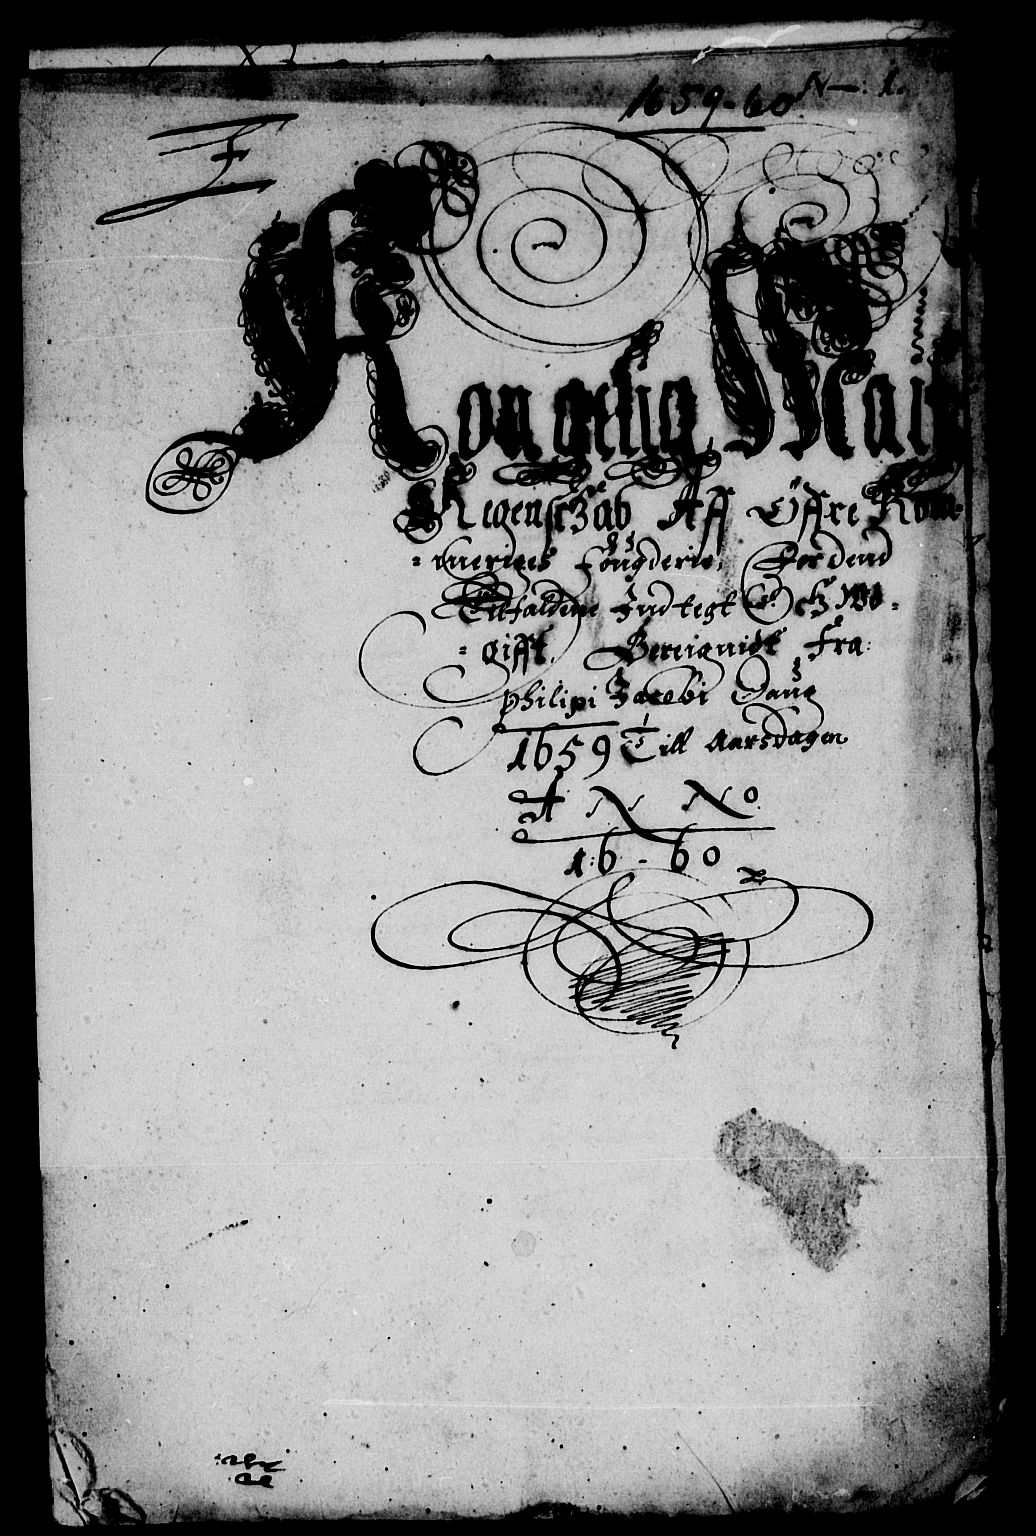 1659-60 N—: 1.
F
Kongelig Maij
Regenschab Aff Öffre Rom=
=meriges Fougderie, For dend
Tilfaldene Indtegt Och Wd=
=gifft, Bereignidt Fra
Philipi Jacobi Daug
1659 Till Aarsdagen
A N No
16-60